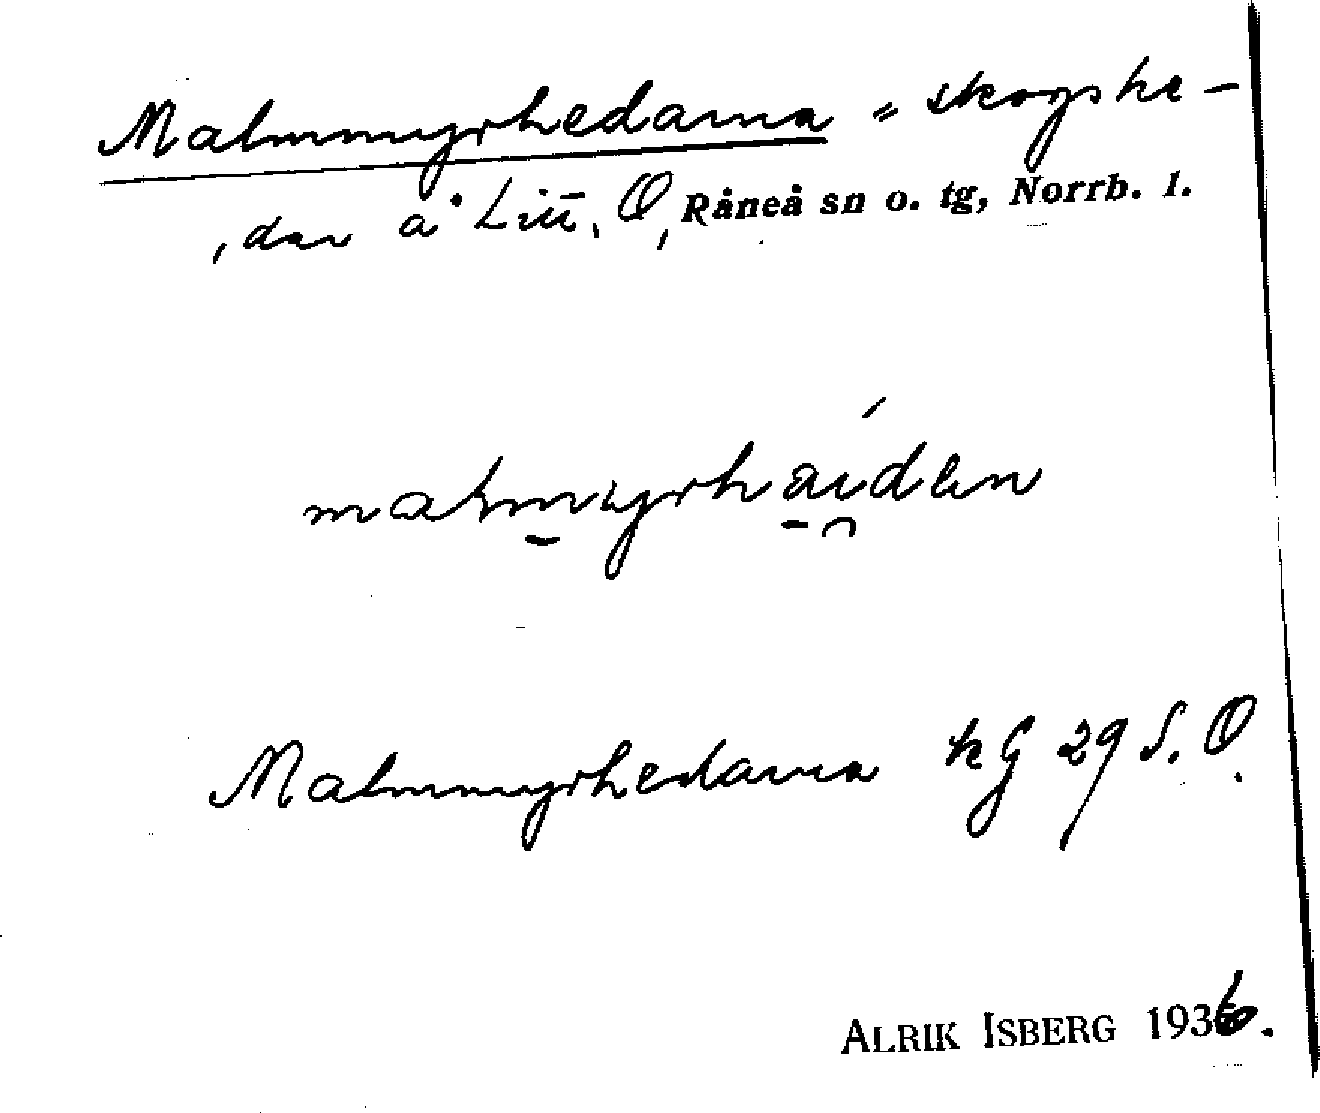 Malmmyrhedarna „ skogshe-
, dar å Litt. O, Råneå sn o. tg, Norrb. l.
malmyrhaiden
Malmmyrhedarna kG 29 S. O.
ALRIK ISBERG 1936.